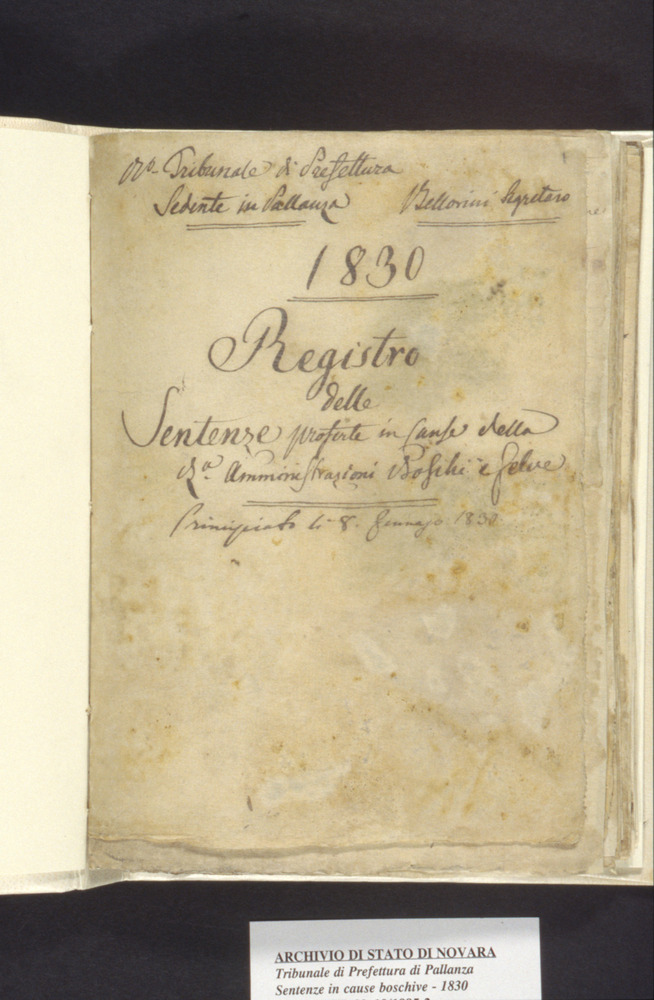 Ro. Tribunale di Prefettura
Sedente in Pallanza Bellorini Segretaro
1830
Registro
delle
Sentenze proferte in Cause della
Ra. Amministrazioni Boschi e Selve
Principiato li 8. Gennajo 1830
ARCHIVIO DI STATO DI NOVARA
Tribunale di Prefettura di Pallanza
Sentenze in cause boschive - 1830